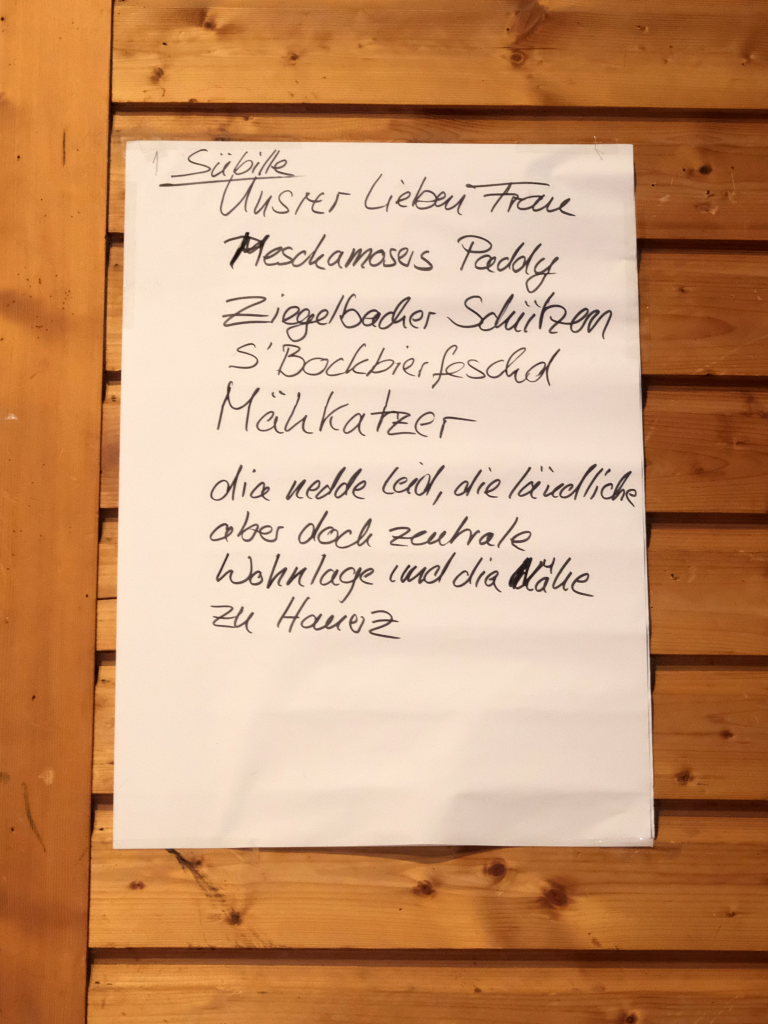 1 Sübille
Unsrer Lieben Frau
Meschamosers Paddy
Ziegelbacher Schützen
S'Bockbierfeschd
Mähkatzer
dia nedde Leid, die ländliche
aber doch zentrale
Wohnlage und dia Nähe
zu Hauerz